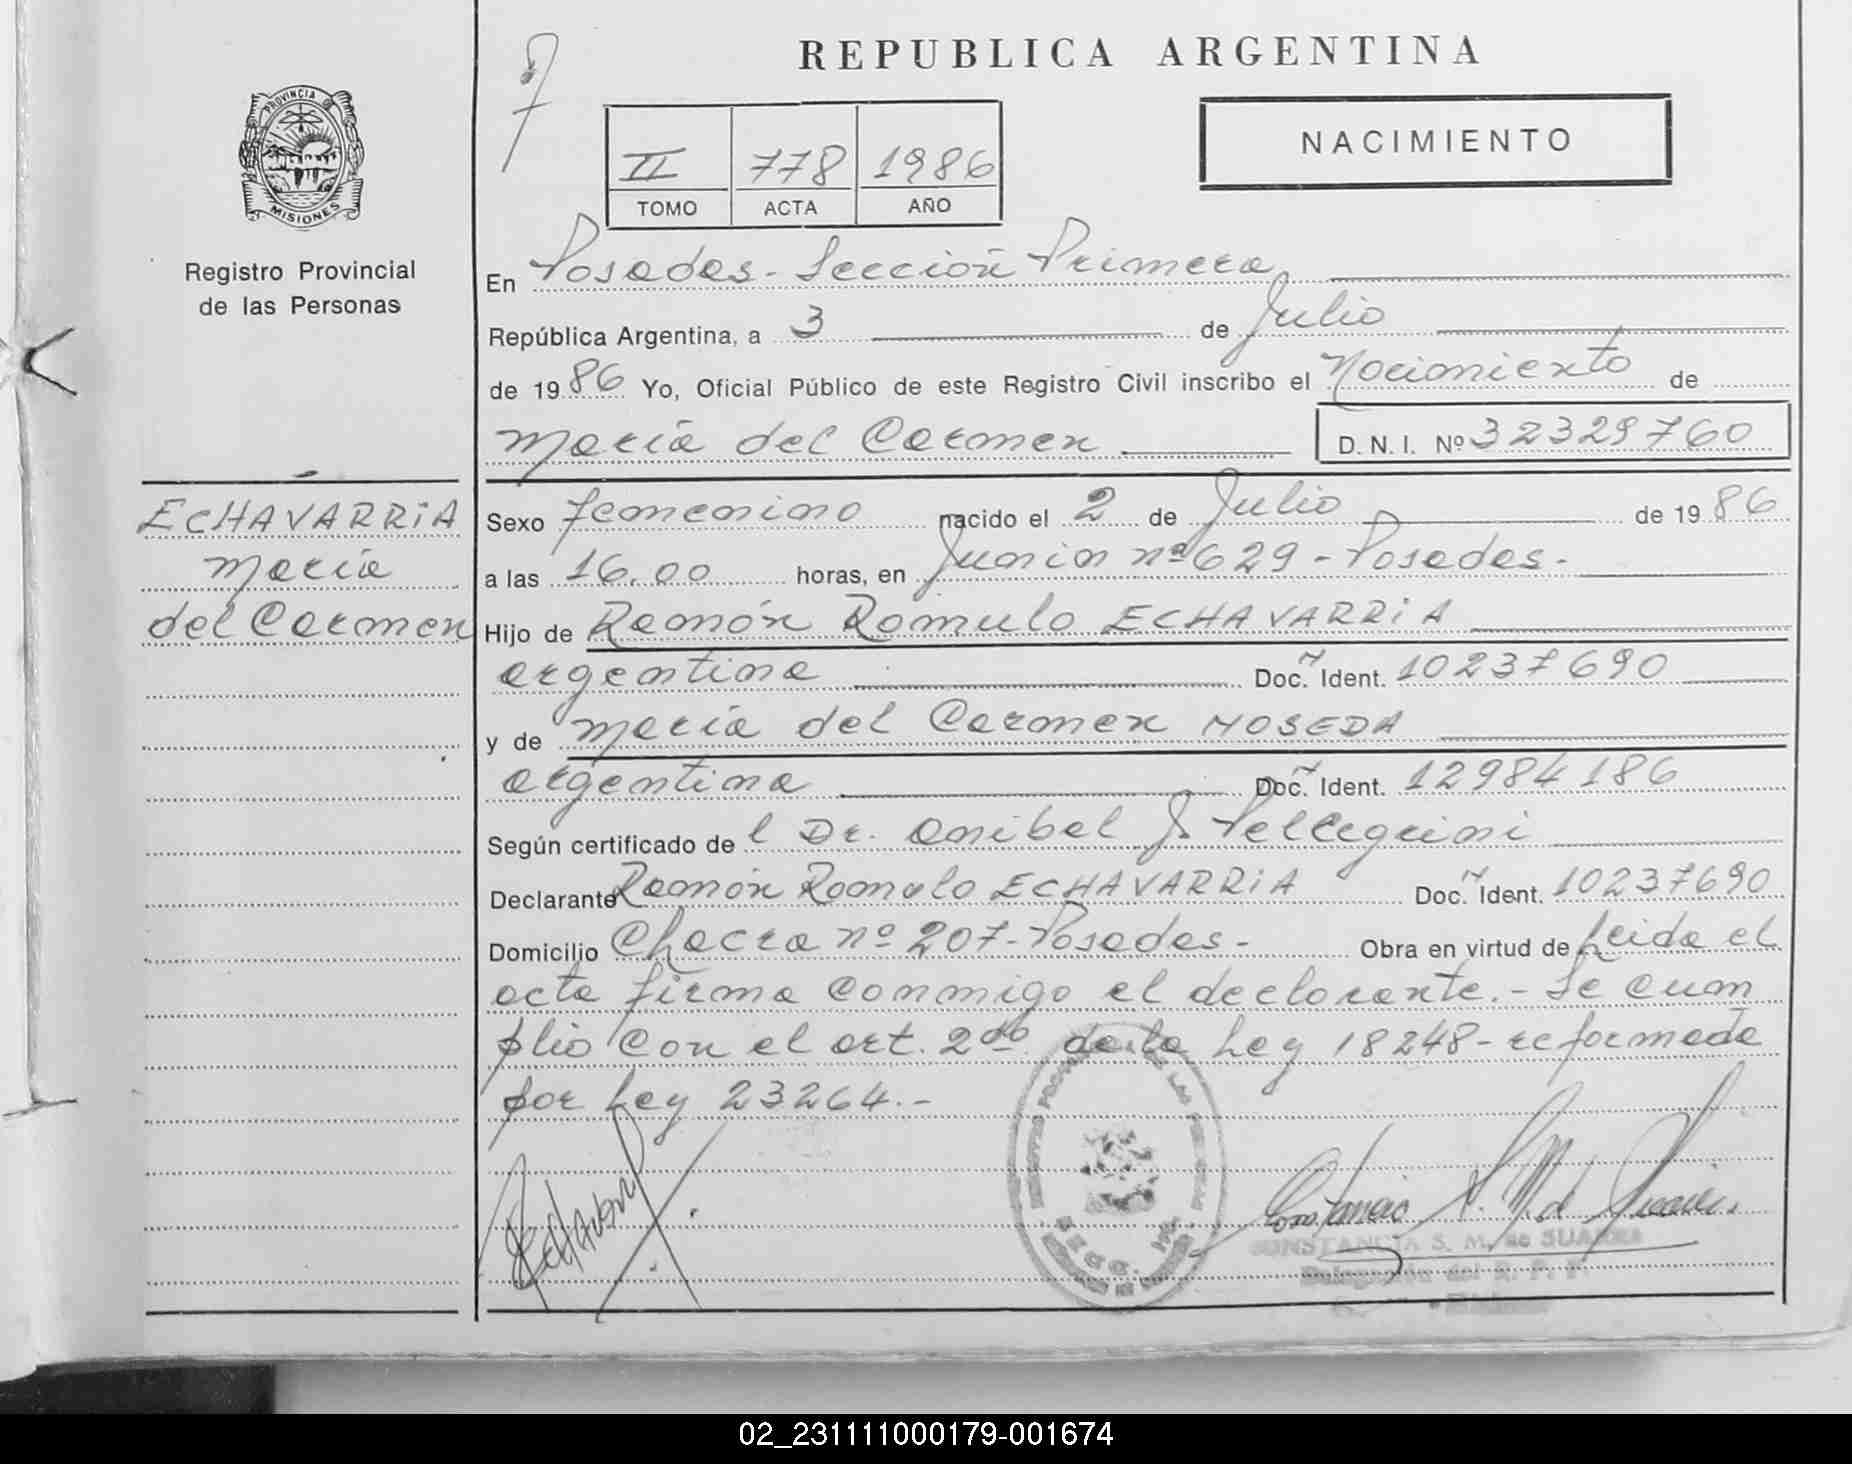 REPUBLICA ARGENTINA
PROVINCIA DE
MISIONES
Registro Provincial
de las Personas
II 778 1986
TOMO ACTA AÑO
NACIMIENTO
En Posadas - Sección Primera
República Argentina, a 3 de Julio
de 1986 Yo, Oficial Público de este Registro Civil inscribo el Nacimiento de
María del Carmen D.N.I. Nº 32329760
ECHAVARRiA
María
del Carmen
Sexo Femenino nacido el 2 de Julio de 1986
a las 16.00 horas, en Junin nº 629 - Posadas -
Hijo de Ramón Romulo ECHAVARRiA
argentina Doc. Ident. 10237690
y de María del Carmen MOSEDA
argentina Doc. Ident. 12984186
Según certificado de l Dr. Anibal J Pellegrini
Declarante Ramón Romulo ECHAVARRiA Doc. Ident. 10237690
Domicilio Chacra nº 207 - Posadas - Obra en virtud de Leida el
acta firma conmigo el declarante. - Se cum
plió con el art. 2do de la Ley 18248 - reformada
por Ley 23264. -
CONSTANCIA S. M. de SUAREZ
02_231111000179-001674